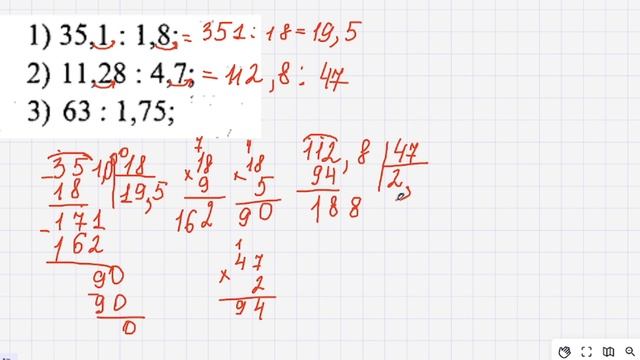 1) 35,1 : 1,8; = 351 : 18 = 19,5
2) 11,28 : 4,7; = 112,8 : 47
3) 63 : 1,75;
351,0 18
18 19,5
- 171
162
90
90
0
7
18
× 9
162
4
18
× 5
90
1
47
× 2
94
112,8 47
94 2,
188